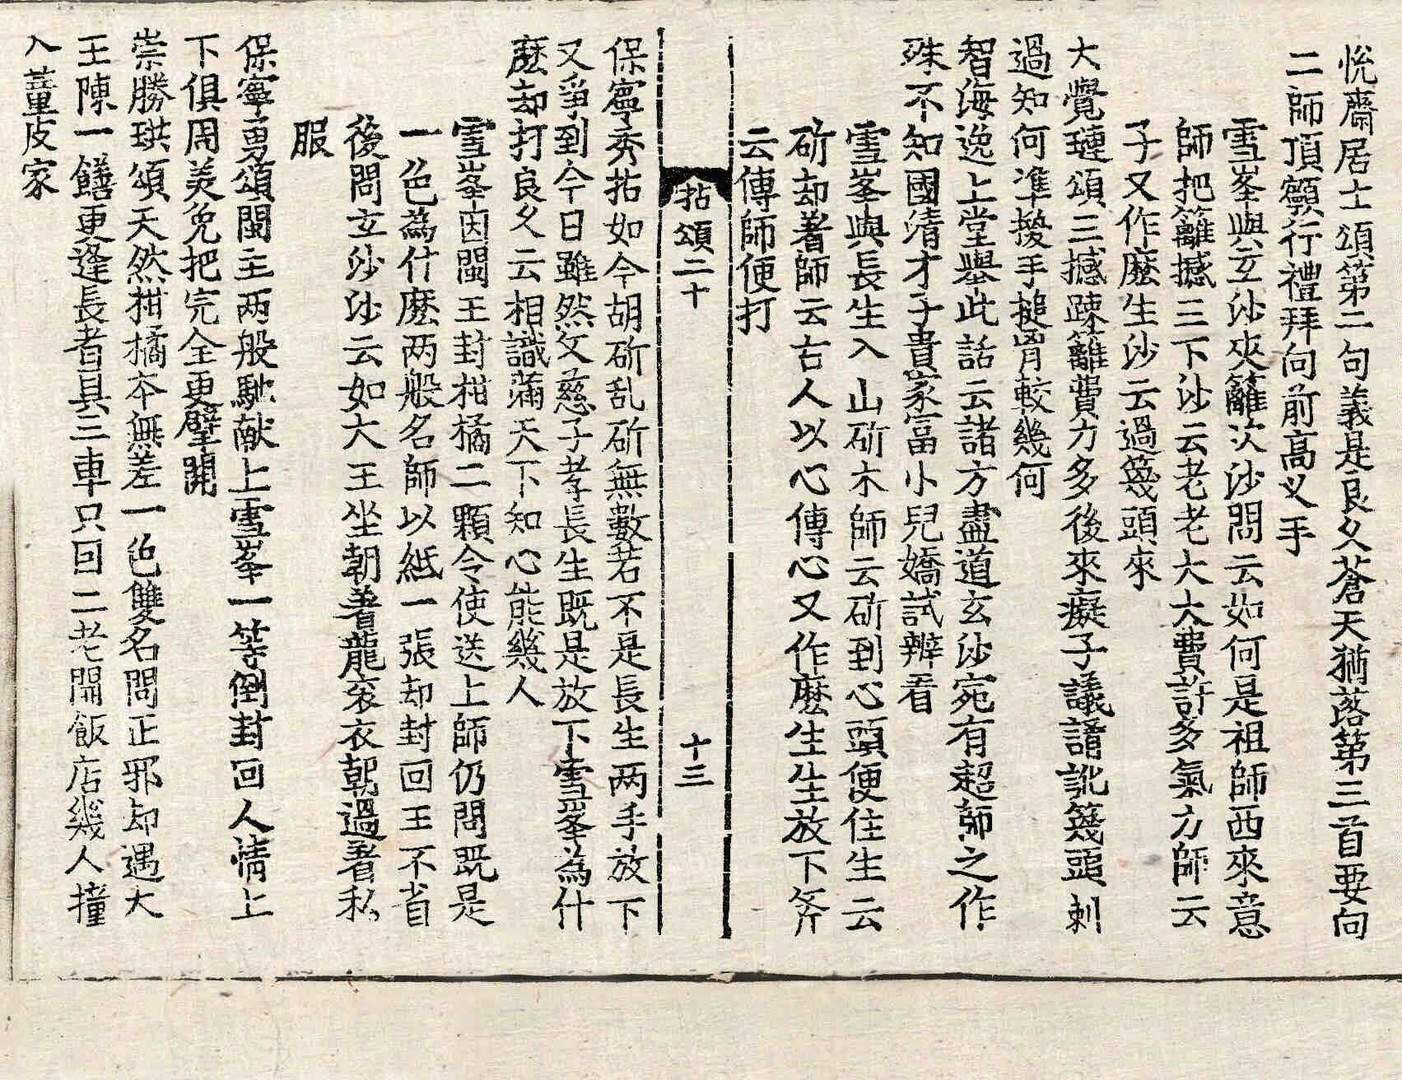 悦齋居士頌第二句義是良久蒼天猶落第三首要向
二師頂𩕳行禮拜向前高乂手
雪峯與玄沙夾籬次沙問云如何是祖師西來意
師把籬撼三下沙云老老大大費許多氣力師云
子又作麽生沙云過篾頭來
大覺璉頌三撼踈籬費力多後來癡子議請訛篾頭刺
過知何凖撥手搥胷較幾何
智海逸上堂舉此話云諸方盡道玄沙宛有超師之作
殊不知國清才子貴家富小兒嬌試辨看
雪峯與長生入山斫木師云斫到心頭便住生云
斫却著師云古人以心傳心又作麽生生放下斧
云傳師便打
拈頌二十
十三
保寧秀拈如今胡斫乱斫無數若不是長生两手放下
又爭到今日雖然父慈子孝長生既是放下雪峯為什
麽却打良久云相識滿天下知心能幾人
雪峯因閩王封柑橘二顆令使送上師仍問既是
一色為什麽两般名師以紙一張却封回王不省
後問玄沙沙云如大王坐朝著龍衮衣朝過著私
服
保寧勇頌閩主两般馳献上雪峯一等倒封回人情上
下俱周羙免把完全更擘開
崇勝珙頌天然柑橘夲無差一色雙名問正邪却遇大
王陳一饍更逢長者具三車只因二老開飯店幾人撞
入葷皮家